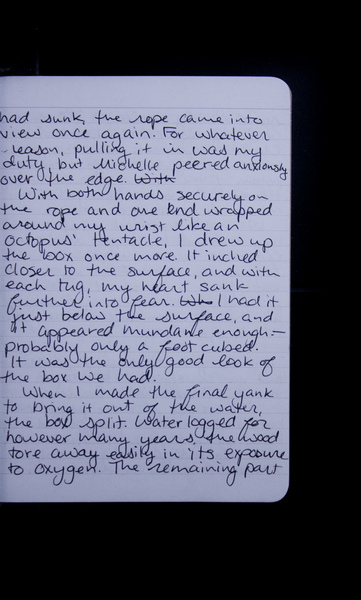 had sunk, the rope came into
view once again. For whatever
reason, pulling it in was my
duty, but Michelle peered anxiously
over the edge. With
With both hands securely on
the rope and one end wrapped
around my wrist like an
octopus' tentacle, I drew up
the box once more. It inched
closer to the surface, and with
each tug, my heart sank
further into fear. Wh I had it
just below the surface, and
it appeared mundane enough–
probably only a foot cubed.
It was the only good look of
the box we had.
When I made the final yank
to bring it out of the water,
the box split. Waterlogged for
however many years, the wood
tore away easily in its exposure
to oxygen. The remaining part